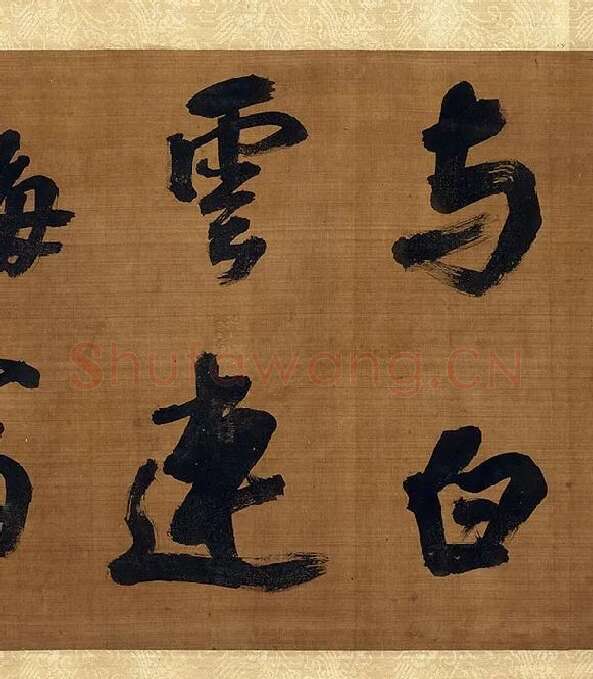 与白
雲連
Shufawang.CN